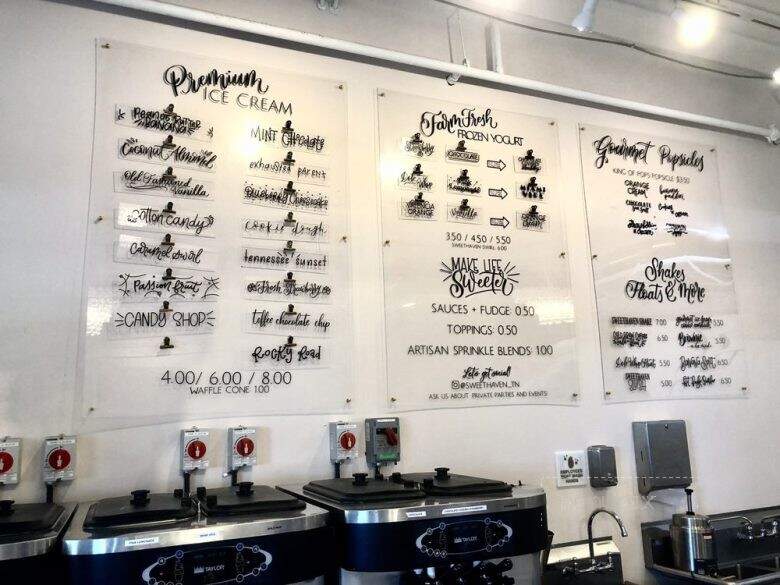 Premium
ICE CREAM
Peanut Butter
Banana
Coconut Almond
Old Fashioned
Vanilla
cotton candy
caramel swirl
Passion fruit
CANDY SHOP
MINT Chocolate
exhausted parent
Blueberry Cheesecake
cookie dough
tennessee sunset
Fresh Strawberry
toffee chocolate chip
ROCKY ROAD
4.00/ 6.00 / 8.00
WAFFLE CONE 1.00
Farm Fresh
FROZEN YOGURT
CHOCOLATE
Vanilla
ORANGE
3.50 / 4.50 / 5.50
SWEETHAVEN SWIRL 6.00
MAKE LIFE
Sweeter
SAUCES + FUDGE: 0.50
TOPPINGS: 0.50
ARTISAN SPRINKLE BLENDS: 1.00
Let's get social!
@SWEETHAVEN_TN
ASK US ABOUT PRIVATE PARTIES AND EVENTS!
Gourmet Popsicles
KING OF POPS POPSICLE $3.50
ORANGE
CREAM
CHOCOLATE
Shakes
Floats & More
SWEETHAVEN SHAKE 7.00
5.50
6.50
Brownie
5.50
6.50
SWEETHAVEN
5.00
6.50
EMPLOYEES
MUST WASH
HANDS
TAYLOR
TAYLOR